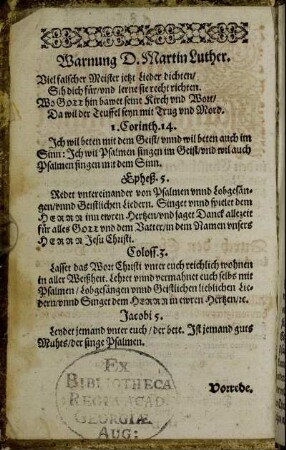 Warnung D. Martin Luther.
Viel falscher Meister jetzt Lieder dichten/
Sih dich für/vnd lerne sie recht richten.
Wo GOTT hin bawet seine Kirch vnd Wort/
Da wil der Teuffel seyn mit Trug vnd Mord.
1. Corinth. 14.
Ich wil beten mit dem Geist/vnnd wil beten auch im
Sinn: Ich wil Psalmen singen im Geist/vnd wil auch
Psalmen singen mit dem Sinn.
Ephes. 5.
Redet vntereinander von Psalmen vnnd Lobgesän-
gen/vnnd Geistlichen Liedern. Singet vnnd spielet dem
HERRN inn ewren Hertzen/vnd saget Danck allezeit
für alles GOTT vnd dem Vatter/in dem Namen vnsers
HERRN Jesu Christi.
Coloss. 3.
Lasset das Wort Christi vnter euch reichlich wohnen
in aller Weißheit. Lehret vnnd vermahnet euch selbs mit
Psalmen/Lobgesängen vnnd Geistlichen lieblichen Lie-
dern/vnnd Singet dem HERRN in ewren Hertzen/rc.
Jacobi 5.
Leydet jemand vnter euch/der bete. Ist jemand guts
Muhts/der singe Psalmen.
EX
BIBLIOTHECA
REGIA ACAD.
GEORGIÆ
AUG:
Vorrede.